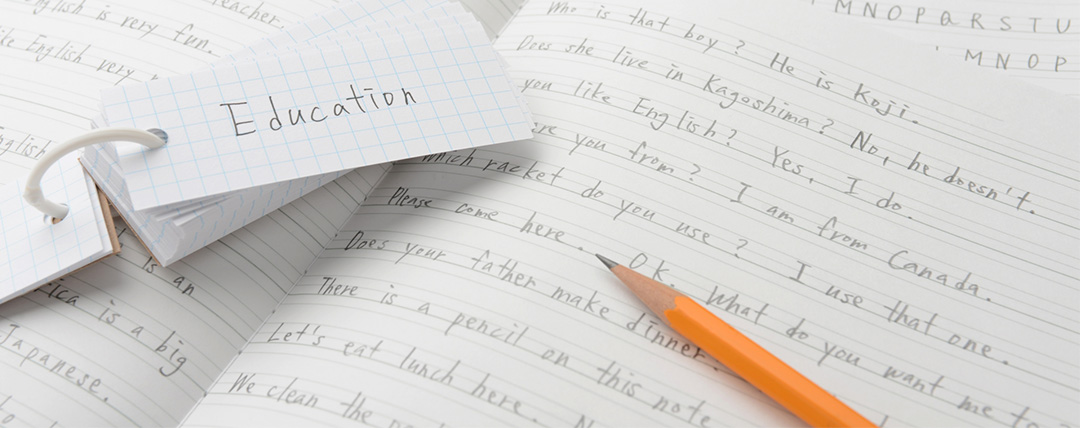 teacher.
English is very fun.
like English very
English
is an
is a big
Japanese.
Education
Who is that boy? He is Koji.
Does she live in Kagoshima? No, he doesn't.
you like English? Yes, I do.
are you from? I am from Canada.
Which racket do you use? I use that one.
Please come here. OK. What do you want me to
Does your father make dinner.
There is a pencil on this note
Let's eat lunch here.
We clean the
M N O P Q R S T U
M N O P